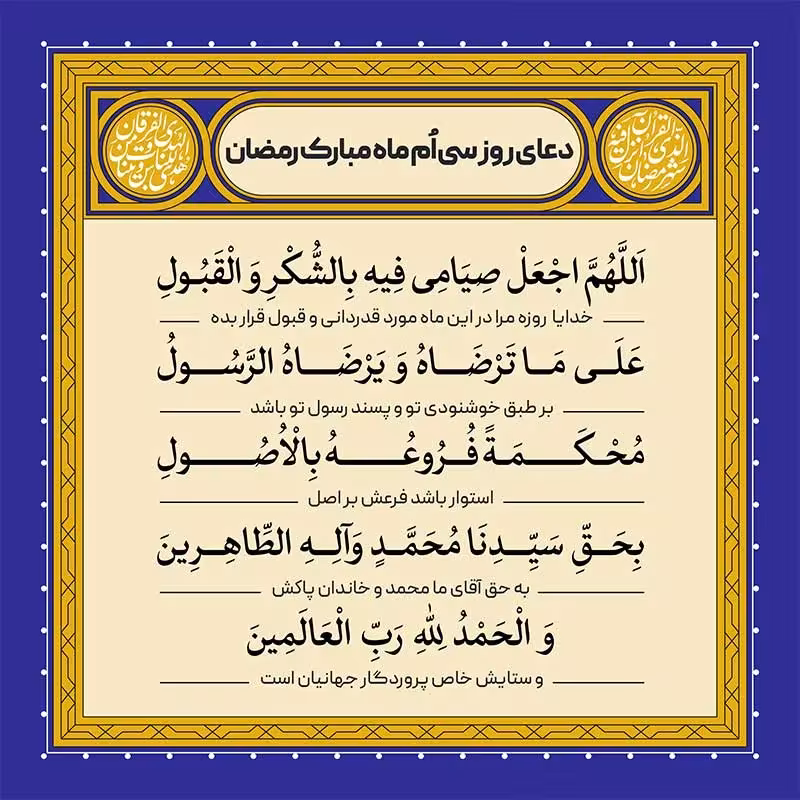 دعای روز سی اُم ماه مبارک رمضان
اَللَّهُمَّ اجْعَلْ صِیَامِی فِیهِ بِالشُّکْرِ وَ الْقَبُولِ
خدایا روزه مرا در این ماه مورد قدردانی و قبول قرار بده
عَلَی مَا تَرْضَاهُ وَ یَرْضَاهُ الرَّسُولُ
بر طبق خوشنودی تو و پسند رسول تو باشد
مُحْکَمَةً فُرُوعُهُ بِالْاُصُولِ
استوار باشد فرعش بر اصل
بِحَقِّ سَیِّدِنَا مُحَمَّدٍ وَآلِهِ الطَّاهِرِینَ
به حق آقای ما محمد و خاندان پاکش
وَ الْحَمْدُ لِلهِ رَبِّ الْعَالَمِینَ
و ستایش خاص پروردگار جهانیان است